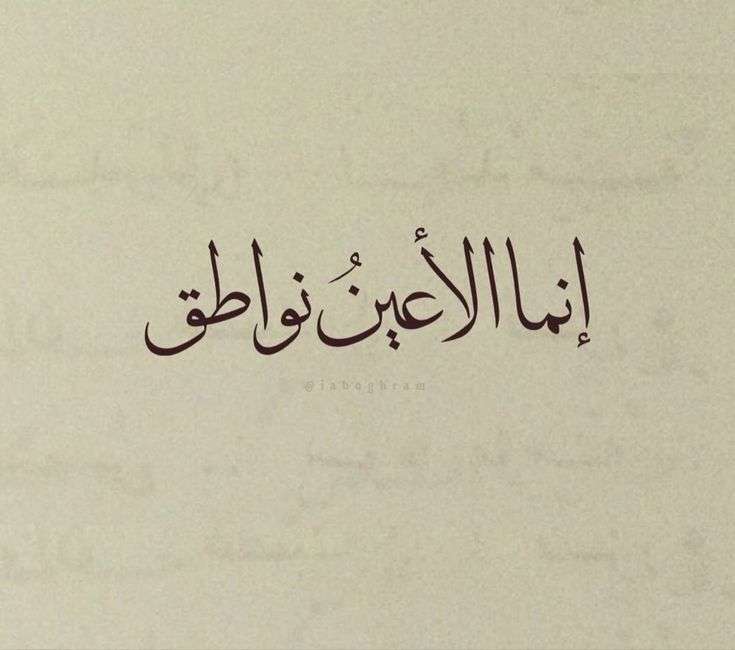 إنما الأعينُ نواطق
@iaboghram